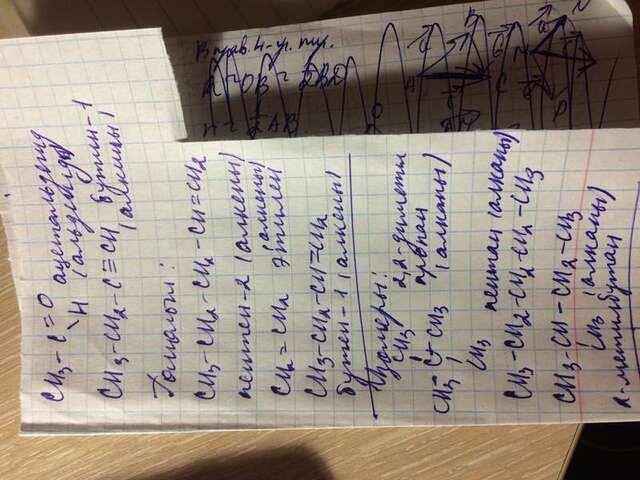 CH3-C=O
H
ацетальдегид
(альдегиды)
CH3-CH2-C≡CH бутин-1
(алкины)
Гомологи:
CH3-CH2-CH2-CH=CH2
пентен-2 (алкены)
(алкены)
CH2=CH2 этилен
CH3-CH2-CH=CH2
бутен-1 (алкены)
Изомеры:
CH3 2,2-диметил
пропан
CH3-C-CH3 (алканы)
CH3
пентан (алканы)
CH3-CH2-CH2-CH2-CH3
CH3-CH-CH2-CH3
CH3 (алканы)
2-метилбутан